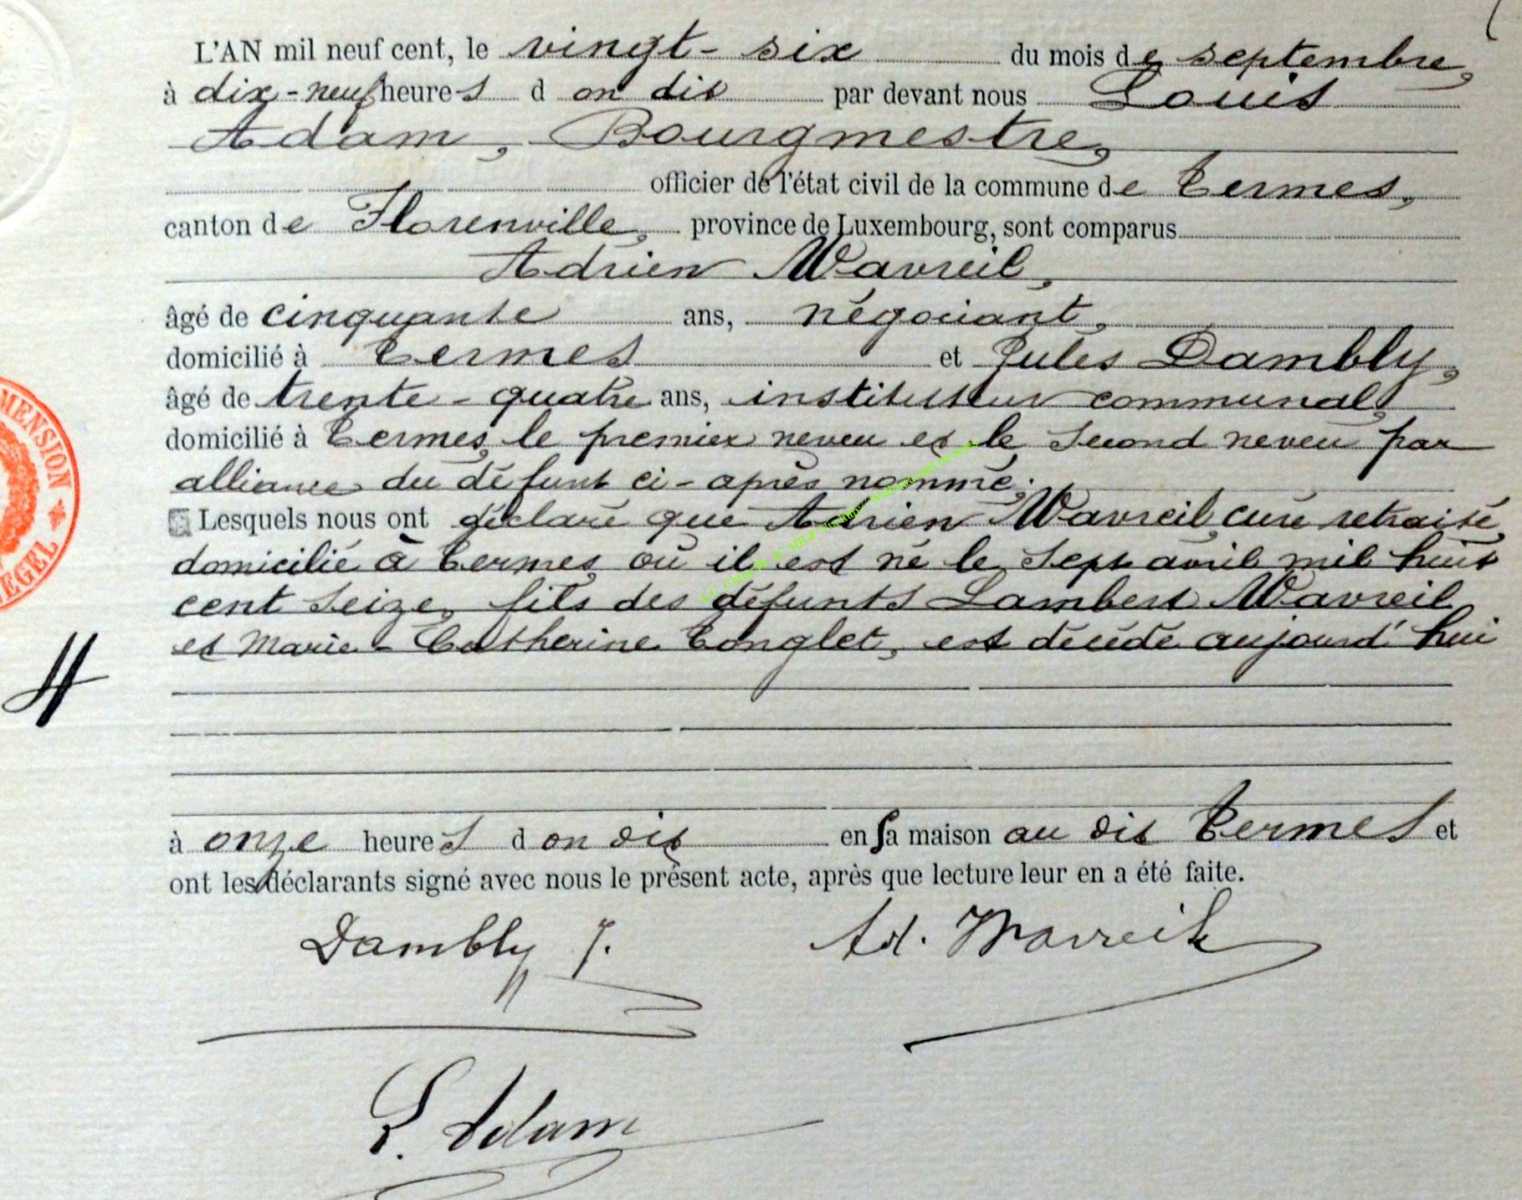 L'AN mil neuf cent, le vingt-six du mois de septembre,
à dix-neuf heures d on dit par devant nous Louis
Adam, Bourgmestre,
officier de l'état civil de la commune de Termes,
canton de Florenville, province de Luxembourg, sont comparus
Adrien Wavreil,
âgé de cinquante ans, négociant,
domicilié à Termes et Jules Dambly,
âgé de trente-quatre ans, instituteur communal,
domicilié à Termes, le premier neveu et le second neveu par
alliance du défunt ci-après nommé;
Lesquels nous ont déclaré que Adrien Wavreil, curé retraité,
domicilié à Termes, où il est né le sept avril mil huit
cent seize, fils des défunts Lambert Wavreil
et Marie-Catherine Tonglet, est décédé aujourd'hui
à onze heures d on dit en sa maison au dit Termes et
ont les déclarants signé avec nous le présent acte, après que lecture leur en a été faite.
Dambly J. Ad. Wavreil
L. Adam
MENSION
EGEL